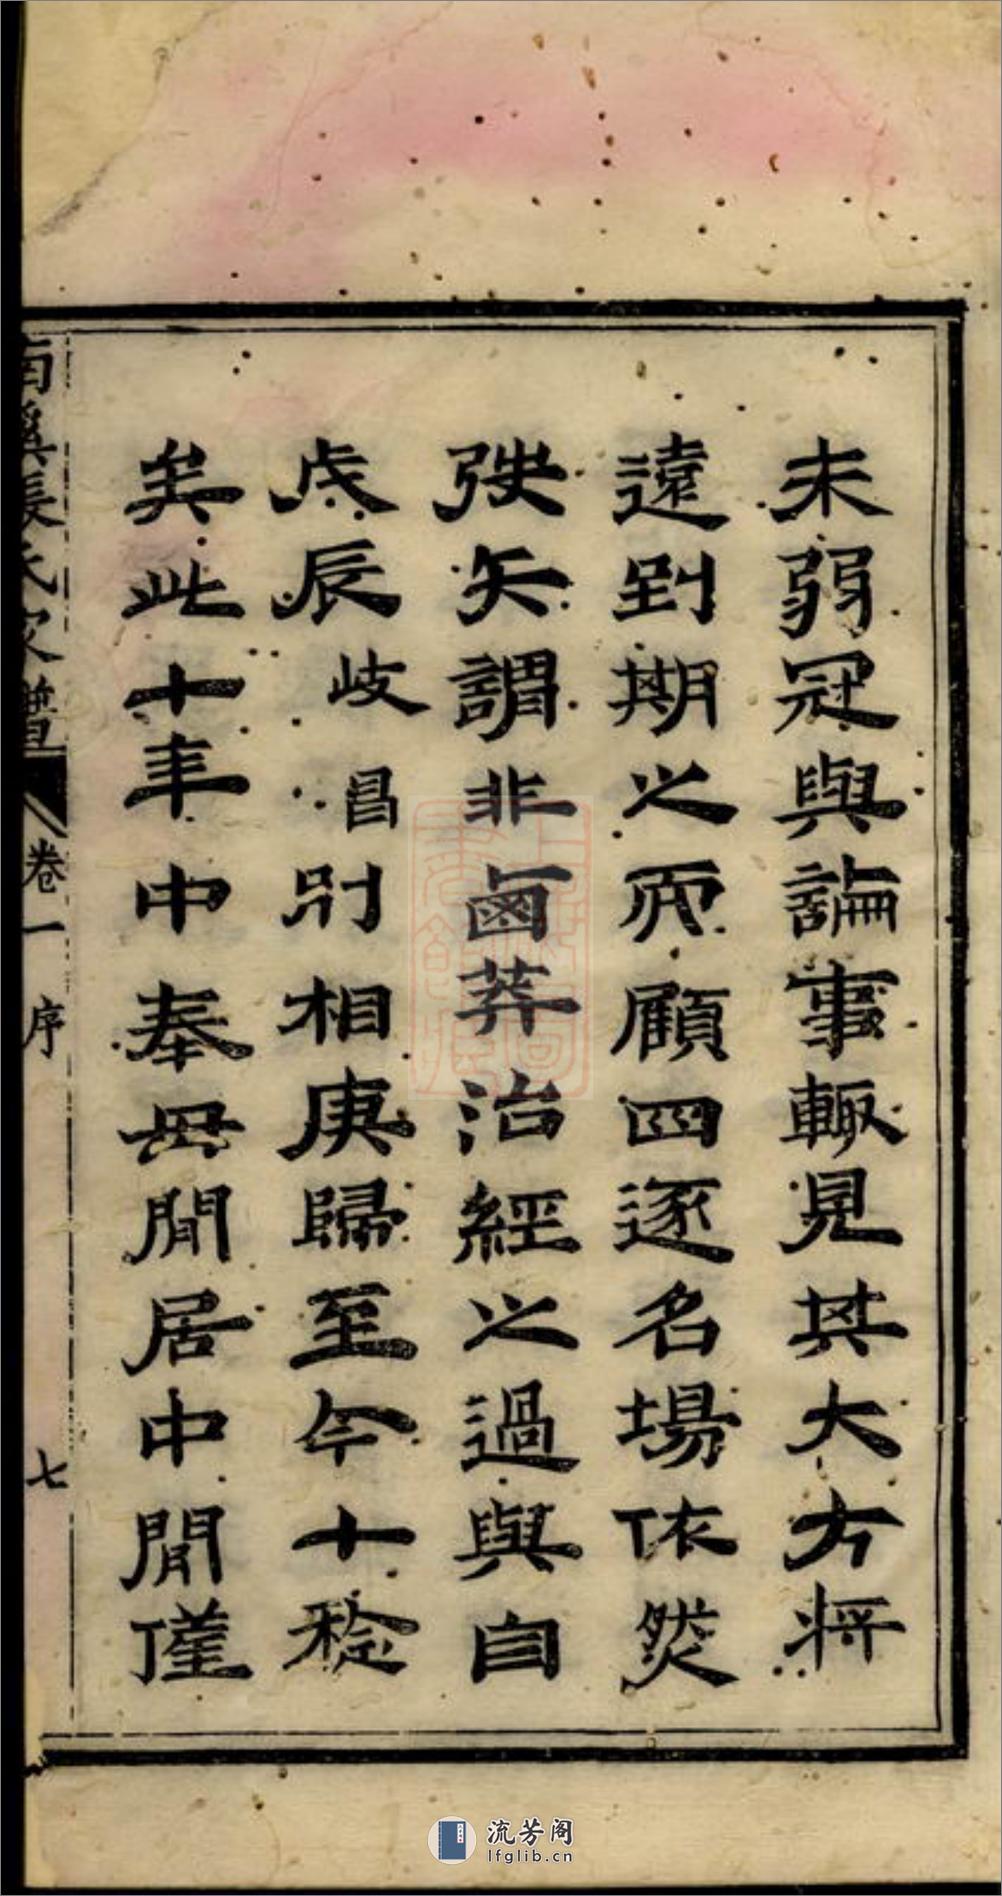 未弱冠與論事輒見其大方將
遠到期之而顧四逐名場依然
弢矢謂非鹵莽治經之過與自
戊辰岐昌別相庚歸至今十稔
矣此十年中奉母閒居中閒僅
南溪張氏家譜 卷一 序 七
流芳阁
lfglib.cn